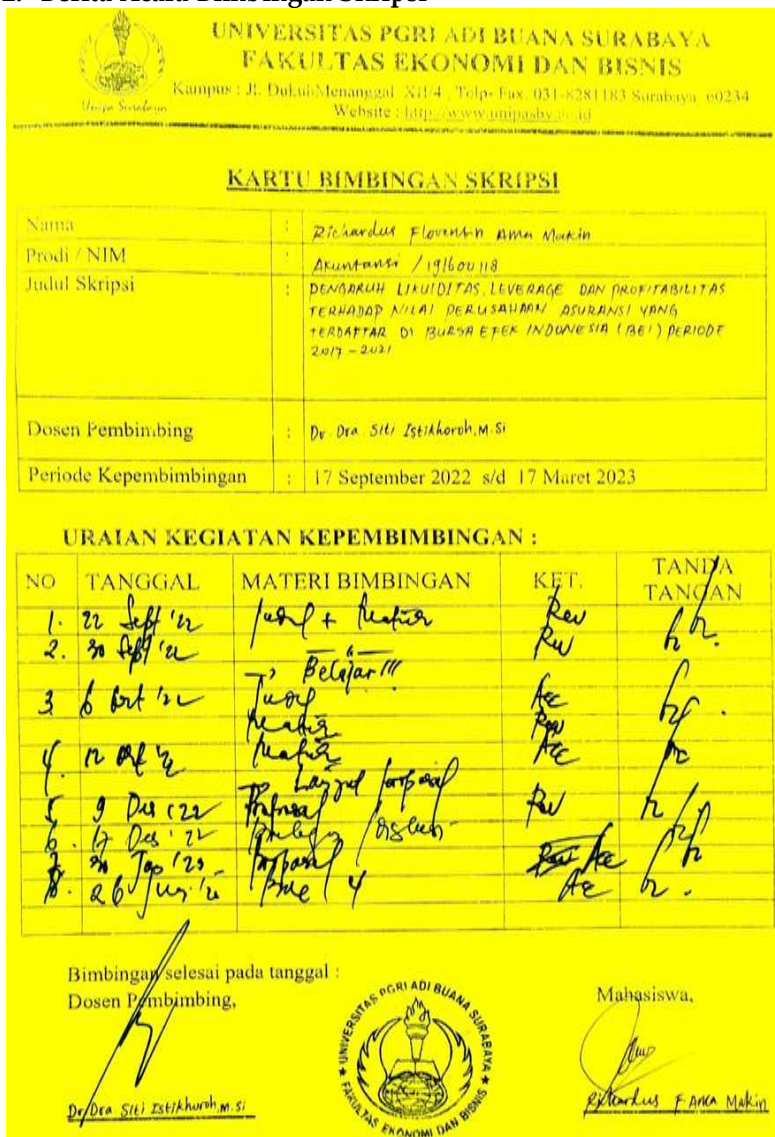 2. Berita Acara Bimbingan Skripsi
UNIVERSITAS PGRI ADI BUANA SURABAYA
FAKULTAS EKONOMI DAN BISNIS
Kampus : Jl. Dukuh Menanggal XII/4, Telp- Fax. 031-8281183 Surabaya 60234
Website : http://www.unipasby.ac.id
Unipa Surabaya
KARTU BIMBINGAN SKRIPSI
Nama : Richardus Florentin Ama Makin
Prodi / NIM : Akuntansi / 191600118
Judul Skripsi : PENGARUH LIKUIDITAS, LEVERAGE DAN PROFITABILITAS
TERHADAP NILAI PERUSAHAAN ASURANSI YANG
TERDAFTAR DI BURSA EFEK INDONESIA (BEI) PERIODE
2017 - 2021
Dosen Pembimbing : Dr. Dra Siti Istikhoroh, M.Si
Periode Kepembimbingan : 17 September 2022 s/d 17 Maret 2023
URAIAN KEGIATAN KEPEMBIMBINGAN :
NO TANGGAL MATERI BIMBINGAN KET. TANDA TANGAN
1. 22 Sept '22 Judul + Rev
2. 30 Sept '22 Rev
Belajar !!!
3 6 Okt '22 Judul Acc
Rev
4. 12 Okt '22 Acc
Lanjut proposal
5 9 Des '22 Proposal Rev
6. Des '22
30 '23 Proposal Acc
8. 26 4 Acc
Bimbingan selesai pada tanggal :
Dosen Pembimbing, Mahasiswa,
UNIVERSITAS PGRI ADI BUANA SURABAYA
FAKULTAS EKONOMI DAN BISNIS
Dr Dra Siti Istikhoroh, M.Si Richardus F Ama Makin